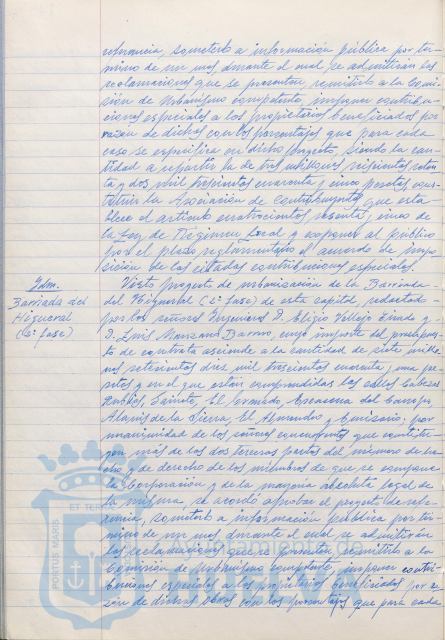 referencia, someterlo a información pública por tér-
mino de un mes durante el cual se admitirán las
reclamaciones que se presenten, remitirlo a la Comi-
sión de Urbanismo competente, imponer contribu-
ciones especiales a los propietarios beneficiados por
razón de dichas con los porcentajes que para cada
caso se especifica en dicho proyecto, siendo la can-
tidad a repartir la de tres millones seiscientas
y dos mil trescientas cuarenta y cinco pesetas, cons-
tituir la Asociación de Contribuyentes que esta-
blece el artículo cuatrocientos sesenta y cinco de
la Ley de Régimen Local y exponer al público
por el plazo reglamentario el acuerdo de impo-
sición de las citadas contribuciones especiales.
Idm.
Barriada del
Higueral
(2ª fase)
Visto proyecto de urbanización de la Barriada
del Higueral (2ª fase) de esta capital, redactado
por los señores Ingenieros D. Eligio Vallejo y
D. Luis Manzano Barrero, cuyo importe del presupues-
to de contrata asciende a la cantidad de siete millo-
nes setecientas diez mil trescientas cuarenta y una pe-
setas y en el que están comprendidas las calles Cabezas
Rubias, Jarrita, El Granado, Escacena del Campo,
Alanís de la Sierra, El Almendro y por
unanimidad de los señores concurrentes que constitu-
yen más de las dos terceras partes del número de he-
cho y de derecho de los miembros de que se compone
la Corporación y de la mayoría absoluta legal de
la misma, se acordó aprobar el proyecto de refe-
rencia, someterlo a información pública por tér-
mino de un mes durante el cual se admitirán
las reclamaciones que se presenten, remitirlo a la
Comisión de Urbanismo competente, imponer contri-
buciones especiales a los propietarios beneficiados por ra-
zón de dichas obras con los porcentajes que para cada
PORTUS MARIS
ET TERR